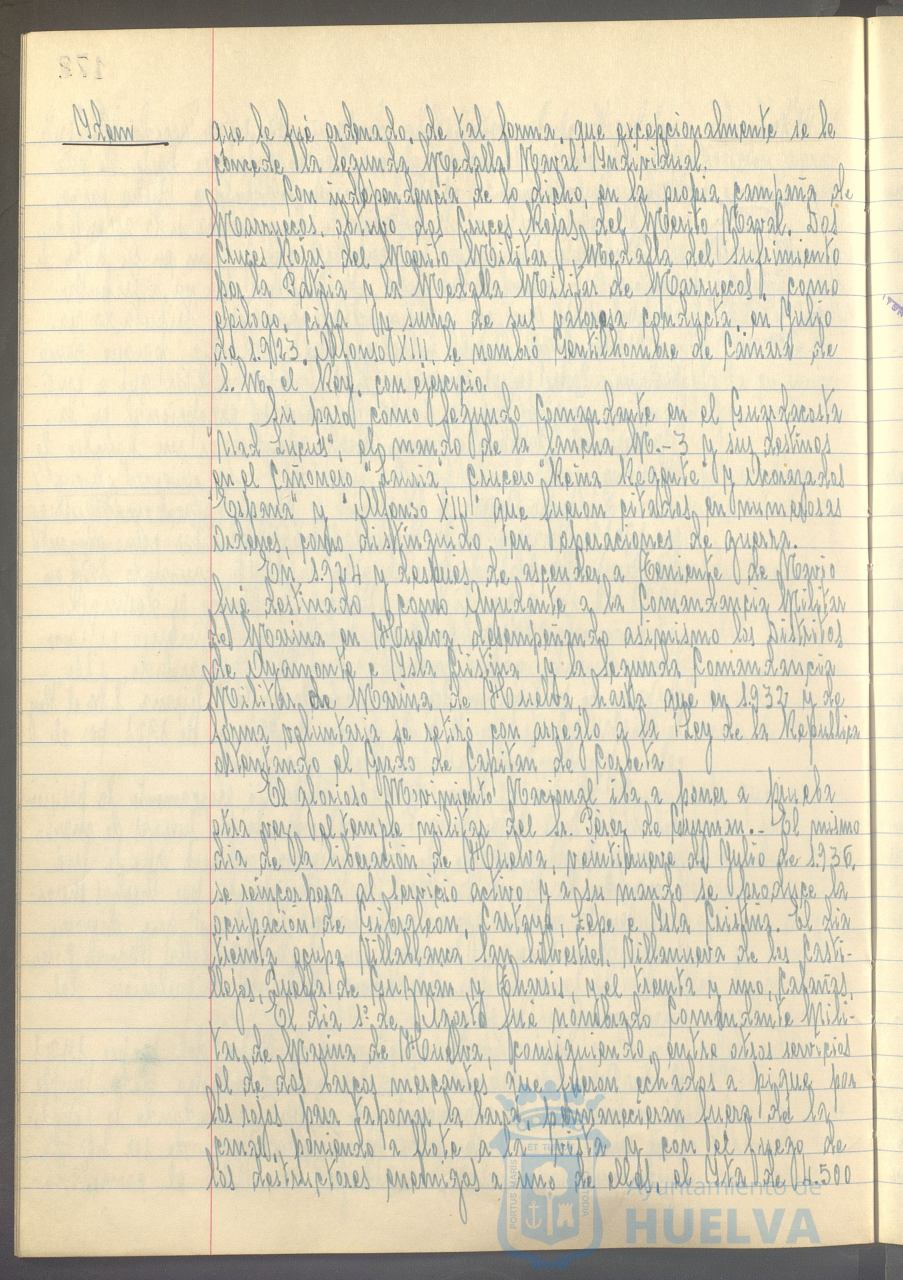 172
Idem
que le fué ordenado, de tal forma, que excepcionalmente se le
concede la Segunda Medalla Naval Individual.
Con independencia de lo dicho, en la propia campaña de
Marruecos, obtuvo dos Cruces Rojas del Mérito Naval. Dos
Cruces Rojas del Mérito Militar, Medalla del Sufrimiento
por la Patria y la Medalla Militar de Marruecos y como
epílogo, cifra y suma de sus valerosa conducta, en Julio
de 1.923. Alfonso XIII, le nombró Gentilhombre de Cámara de
S. M. el Rey, con ejercicio.
Su paso como Segundo Comandante en el Guardacosta
"Uad Lucus", el mando de la Lancha M.-3 y sus destinos
en el Cañonero "Lauria" Crucero "Reina Regente" y Acorazados
"España" y "Alfonso XIII" que fueron citados en numerosas
Ordenes, como distinguido, en operaciones de guerra.
En 1.924 y después de ascender a Teniente de Navio
fué destinado como Ayudante a la Comandancia Militar
de Marina en Huelva, desempeñando asimismo los Distritos
de Ayamonte e Isla Cristina y la Segunda Comandancia
Militar de Marina, de Huelva, hasta que en 1.932 y de
forma voluntaria se retiró con arreglo a la Ley de la Republica
ostentando el Grado de Capitan de Corbeta
El glorioso Movimiento Nacional iba a poner a prueba
otra vez, el temple militar del Sr. Pérez de Guzman.- El mismo
dia de la liberación de Huelva, veintinueve de Julio de 1.936,
se reincorpora al servicio activo y a su mando se produce la
ocupación de Gibraleon, Cartaya, Lepe e Isla Cristina. El dia
treinta ocupa Villablanca, San Silvestre, Villanueva de los Casti-
llejos, Puebla de Guzman y Tharsis, y el treinta y uno, Cabañas.
El dia 1º de Agosto fué nombrado Comandante Mili-
tar de Marina de Huelva, consiguiendo, entre otros servicios
el de dos barcos mercantes que fueron echados a pique por
los rojos para taponar la barra, permanecieran fuera de la
canal, poniendo a flote, a la vista y con el fuego de
los destructores enemigos a uno de ellos, el Ita de 4.500
PORTUS MARIS ET TERRAE CUSTODIA
Ayuntamiento de
HUELVA